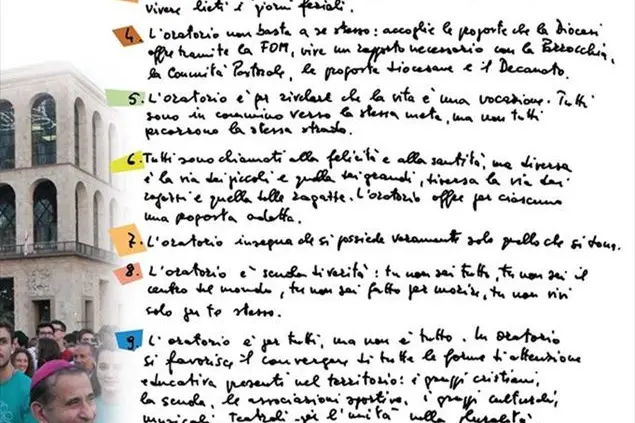 vivere lieti i giorni feriali.
4. L'oratorio non basta a se stesso: accoglie le proposte che la Diocesi
offre tramite la FOM, vive un rapporto necessario con la Parrocchia,
la Comunità Pastorale, le proposte diocesane e il Decanato.
5. L'oratorio è per rivelare che la vita è una vocazione. Tutti
sono in cammino verso la stessa meta, ma non tutti
percorrono la stessa strada.
6. Tutti sono chiamati alla felicità e alla santità, ma diversa
è la via dei piccoli e quella dei grandi, diversa la via dei
ragazzi e quella delle ragazze. L'oratorio offre per ciascuno
una proposta adatta.
7. L'oratorio insegna che si possiede veramente solo quello che si dona.
8. L'oratorio è scuola di verità: tu non sei tutto, tu non sei il
centro del mondo, tu non sei fatto per morire, tu non vivi
solo per te stesso.
9. L'oratorio è per tutti, ma non è tutto. In oratorio
si favorisce il convergere di tutte le forme di attenzione
educativa presenti nel territorio: i gruppi cristiani,
la scuola, le associazioni sportive, i gruppi culturali,
musicali, teatrali l'unità nella pluralità